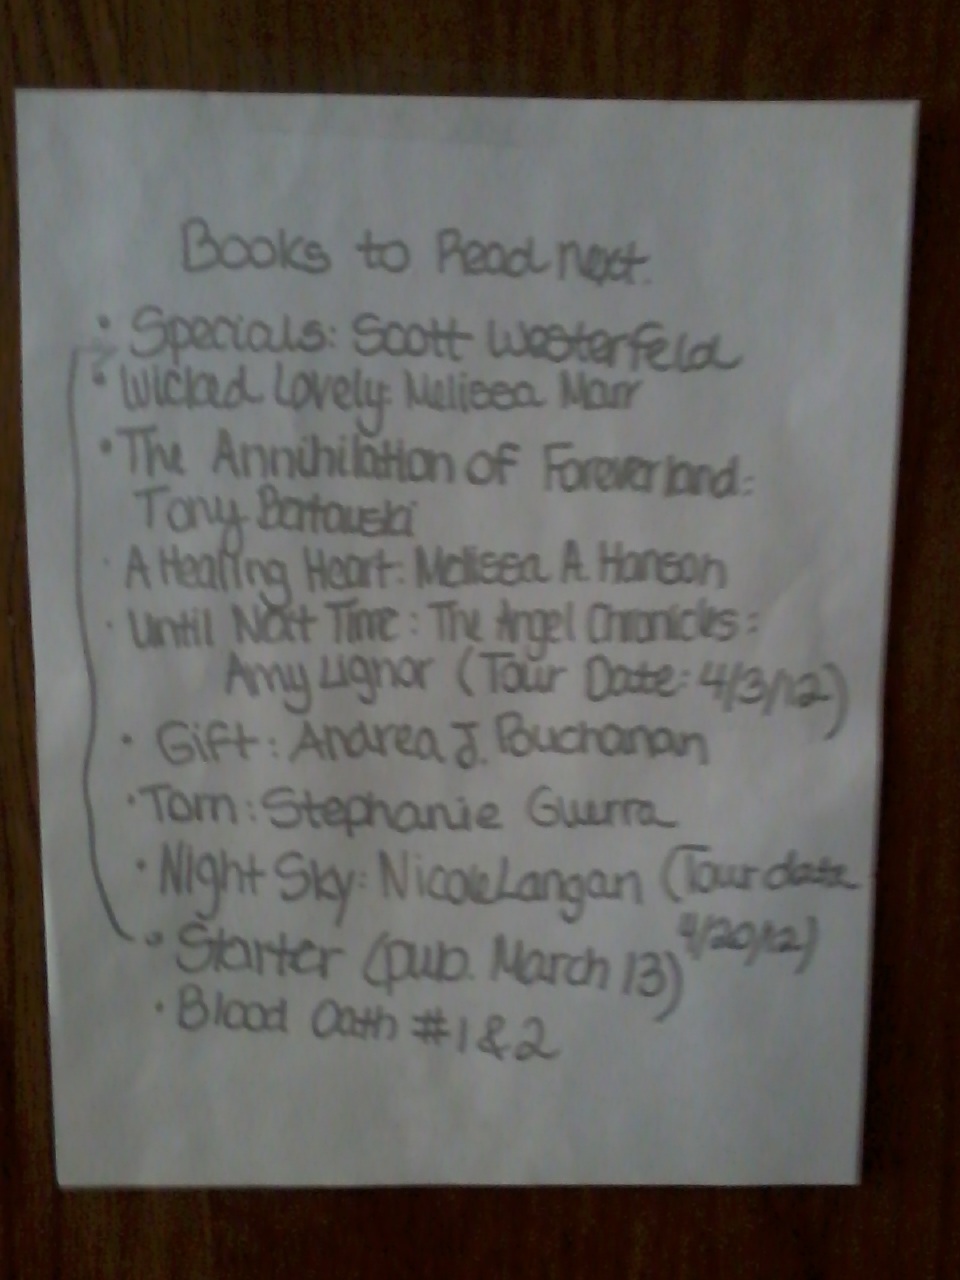 Books to Read next.
• Specials: Scott Westerfeld
• Wicked Lovely: Melissa Marr
• The Annihilation of Foreverland:
Tony Bertauski
• A Healing Heart: Melissa A. Hanson
• Until Next Time: The Angel Chronicles:
Amy Lignor (Tour Date: 4/3/12)
• Gift: Andrea J. Buchanan
• Torn: Stephanie Guerra
• Night Sky: Nicole Langan (Tour date
4/20/12)
• Starter (pub. March 13)
• Blood Oath #1 & 2